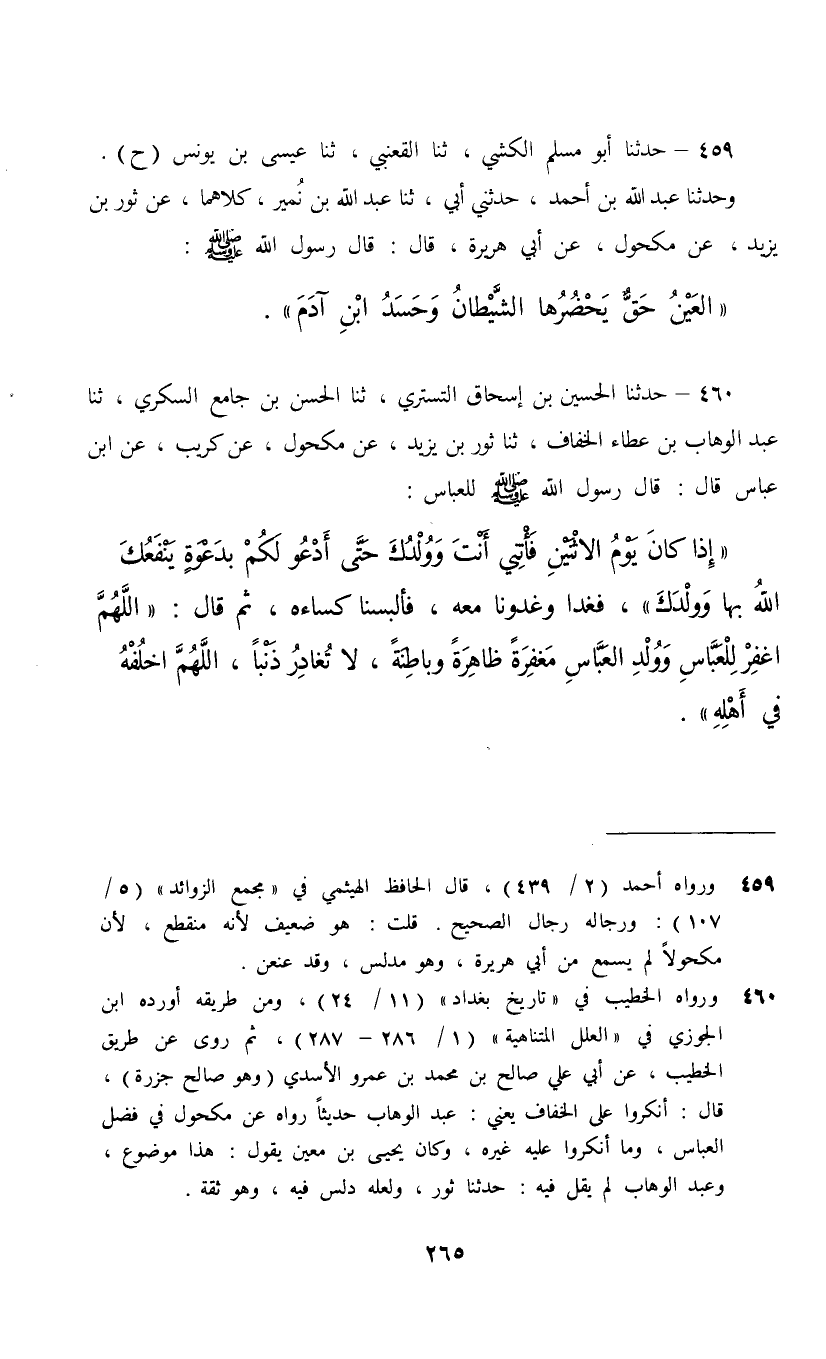 ٤٥٩ – حدثنا أبو مسلم الكشي ، ثنا القعنبي ، ثنا عيسى بن يونس (ح) .
وحدثنا عبد الله بن أحمد ، حدثني أبي ، ثنا عبد الله بن نُمير ، كلاهما ، عن ثور بن
يزيد ، عن مكحول ، عن أبي هريرة ، قال : قال رسول الله ﷺ :
« العَيْنُ حَقٌّ يَحْضُرُها الشَّيْطانُ وَحَسَدُ ابْنِ آدَمَ» .
٤٦٠ – حدثنا الحسين بن إسحاق التستري ، ثنا الحسن بن جامع السكري ، ثنا
عبد الوهاب بن عطاء الخفاف ، ثنا ثور بن يزيد ، عن مكحول ، عن كريب ، عن ابن
عباس قال : قال رسول الله ﷺ للعباس :
« إِذا كانَ يَوْمُ الاثْنَيْنِ فَأْتِني أَنْتَ وَوُلْدُكَ حَتَّى أَدْعُو لَكُمْ بِدَعْوَةٍ يَنْفَعُكَ
اللهُ بها وَوُلْدَكَ» ، فغدا وغدونا معه ، فألبسنا كساءه ، ثم قال : « اللَّهُمَّ
اغفِرْ لِلْعَبَّاسِ وَوُلْدِ العَبَّاسِ مَغفِرَةً ظاهِرَةً وباطِنَةً ، لا تُغادِرُ ذَنْباً ، اللَّهُمَّ اخلُفْهُ
في أَهْلِهِ» .
٤٥٩ ورواه أحمد (٢ / ٤٣٩) ، قال الحافظ الهيثمي في «مجمع الزوائد» (٥ /
١٠٧) : ورجاله رجال الصحيح . قلت : هو ضعيف لأنه منقطع ، لأن
مكحولاً لم يسمع من أبي هريرة ، وهو مدلس ، وقد عنعن .
٤٦٠ ورواه الخطيب في «تاريخ بغداد» (١١ / ٢٤) ، ومن طريقه أورده ابن
الجوزي في «العلل المتناهية» (١ / ٢٨٦ – ٢٨٧) ، ثم روى عن طريق
الخطيب ، عن أبي علي صالح بن محمد بن عمرو الأسدي (وهو صالح جزرة) ،
قال : أنكروا على الخفاف يعني : عبد الوهاب حديثاً رواه عن مكحول في فضل
العباس ، وما أنكروا عليه غيره ، وكان يحيى بن معين يقول : هذا موضوع ،
وعبد الوهاب لم يقل فيه : حدثنا ثور ، ولعله دلس فيه ، وهو ثقة .
٢٦٥